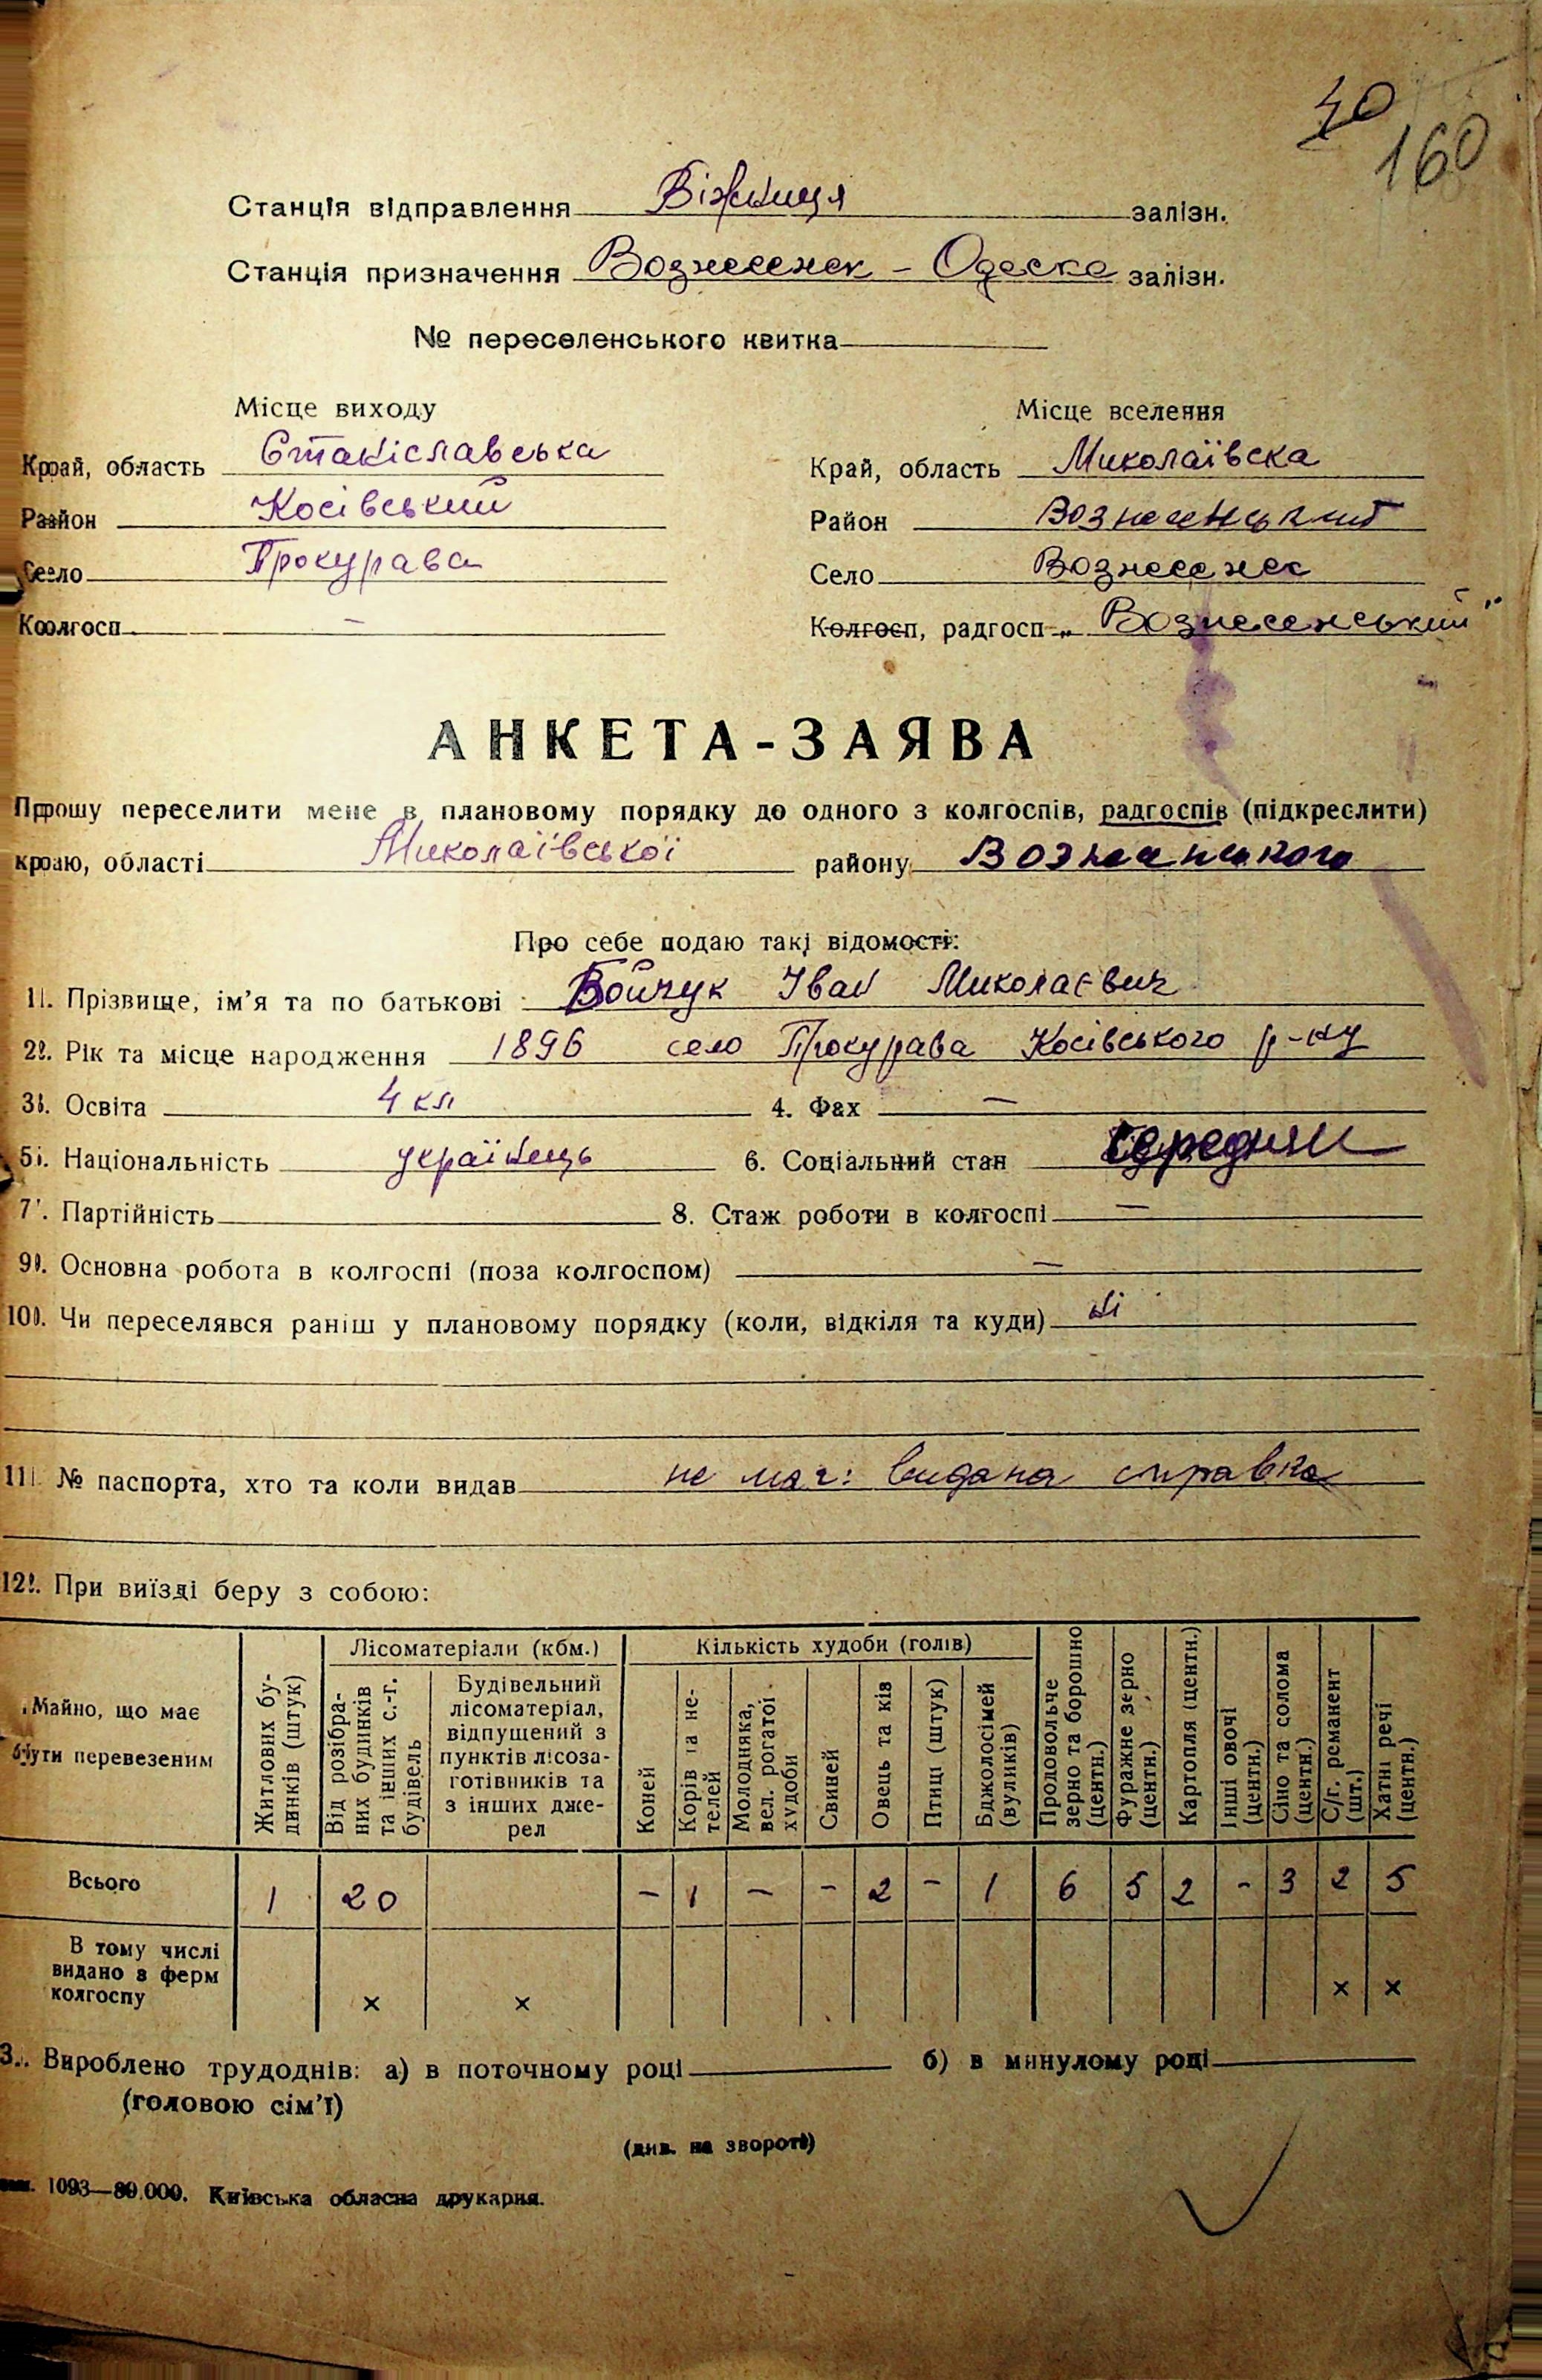 40
160
Станція відправлення Віжниця залізн.
Станція призначення Вознесенск - Одеска залізн.
№ переселенського квитка
Місце виходу
Місце вселення
Край, область Станіславська
Край, область Миколаївска
Район Косівський
Район Вознесенський
Село Прокурава
Село Вознесенск
Колгосп —
Колгосп, радгосп „Вознесенський"
АНКЕТА-ЗАЯВА
Прошу переселити мене в плановому порядку до одного з колгоспів, радгоспів (підкреслити)
краю, області Миколаївської району Вознесенського
Про себе подаю такі відомості:
1. Прізвище, ім'я та по батькові Бойчук Іван Миколаєвич
2. Рік та місце народження 1896 село Прокурава Косівського р-ну
3. Освіта 4 кл 4. Фах —
5. Національність українець 6. Соціальний стан середняк
7. Партійність 8. Стаж роботи в колгоспі —
9. Основна робота в колгоспі (поза колгоспом) —
10. Чи переселявся раніш у плановому порядку (коли, відкіля та куди) ні
11. № паспорта, хто та коли видав не має: видана справка
12. При виїзді беру з собою:
Майно, що має бути перевезеним
Житлових будинків (штук)
Лісоматеріали (кбм.)
Від розібраних будинків та інших с.-г. будівель
Будівельний лісоматеріал, відпущений з пунктів лісозаготівників та з інших джерел
Кількість худоби (голів)
Коней
Корів та нетелей
Молодняка, вел. рогатої худоби
Свиней
Овець та ків
Птиці (штук)
Бджолосімей (вуликів)
Продовольче зерно та борошно (центн.)
Фуражне зерно (центн.)
Картопля (центн.)
Інші овочі (центн.)
Сіно та солома (центн.)
С/г. реманент (шт.)
Хатні речі (центн.)
Всього 1 20 - 1 - - 2 - 1 6 5 2 - 3 2 5
В тому числі видано з ферм колгоспу × × × ×
3. Вироблено трудоднів: а) в поточному році б) в минулому році
(головою сім'ї)
(див. на звороті)
1093—80.000. Київська обласна друкарня.